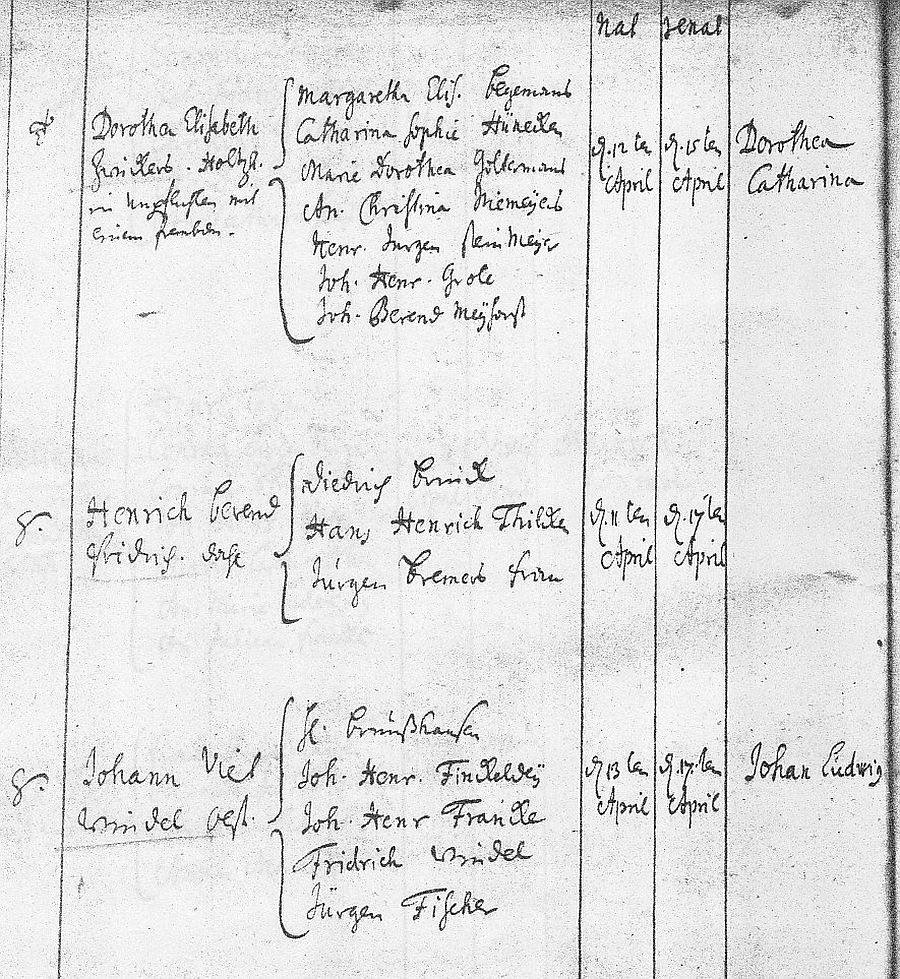 Nat
renat
Dorothea Elisabeth
Holtzh.
in Unpflichten mit
einem frembden.
Margaretha Elis. Begemans
Catharina Sophie Hünecken
Marie Dorothea Goltermans
An. Christina Niemeyers
Henr. Jürgen Steinmeyer
Joh. Henr. Grote
Joh. Berend
d. 12 ten
April
d. 15 ten
April
Dorothea
Catharina
Henrich Berend
Fridrich.
Diedrich
Hans Henrich Thilcke
Jürgen Bremers Frau
d. 11 ten
April
d. 17 ten
April
Johann Viet
Windel
H. Brüißhausen
Joh. Henr. Finckeldey
Joh. Henr Francke
Fridrich Windel
Jürgen Fischer
d. 13 ten
April
d. 17. ten
April
Johan Ludwig